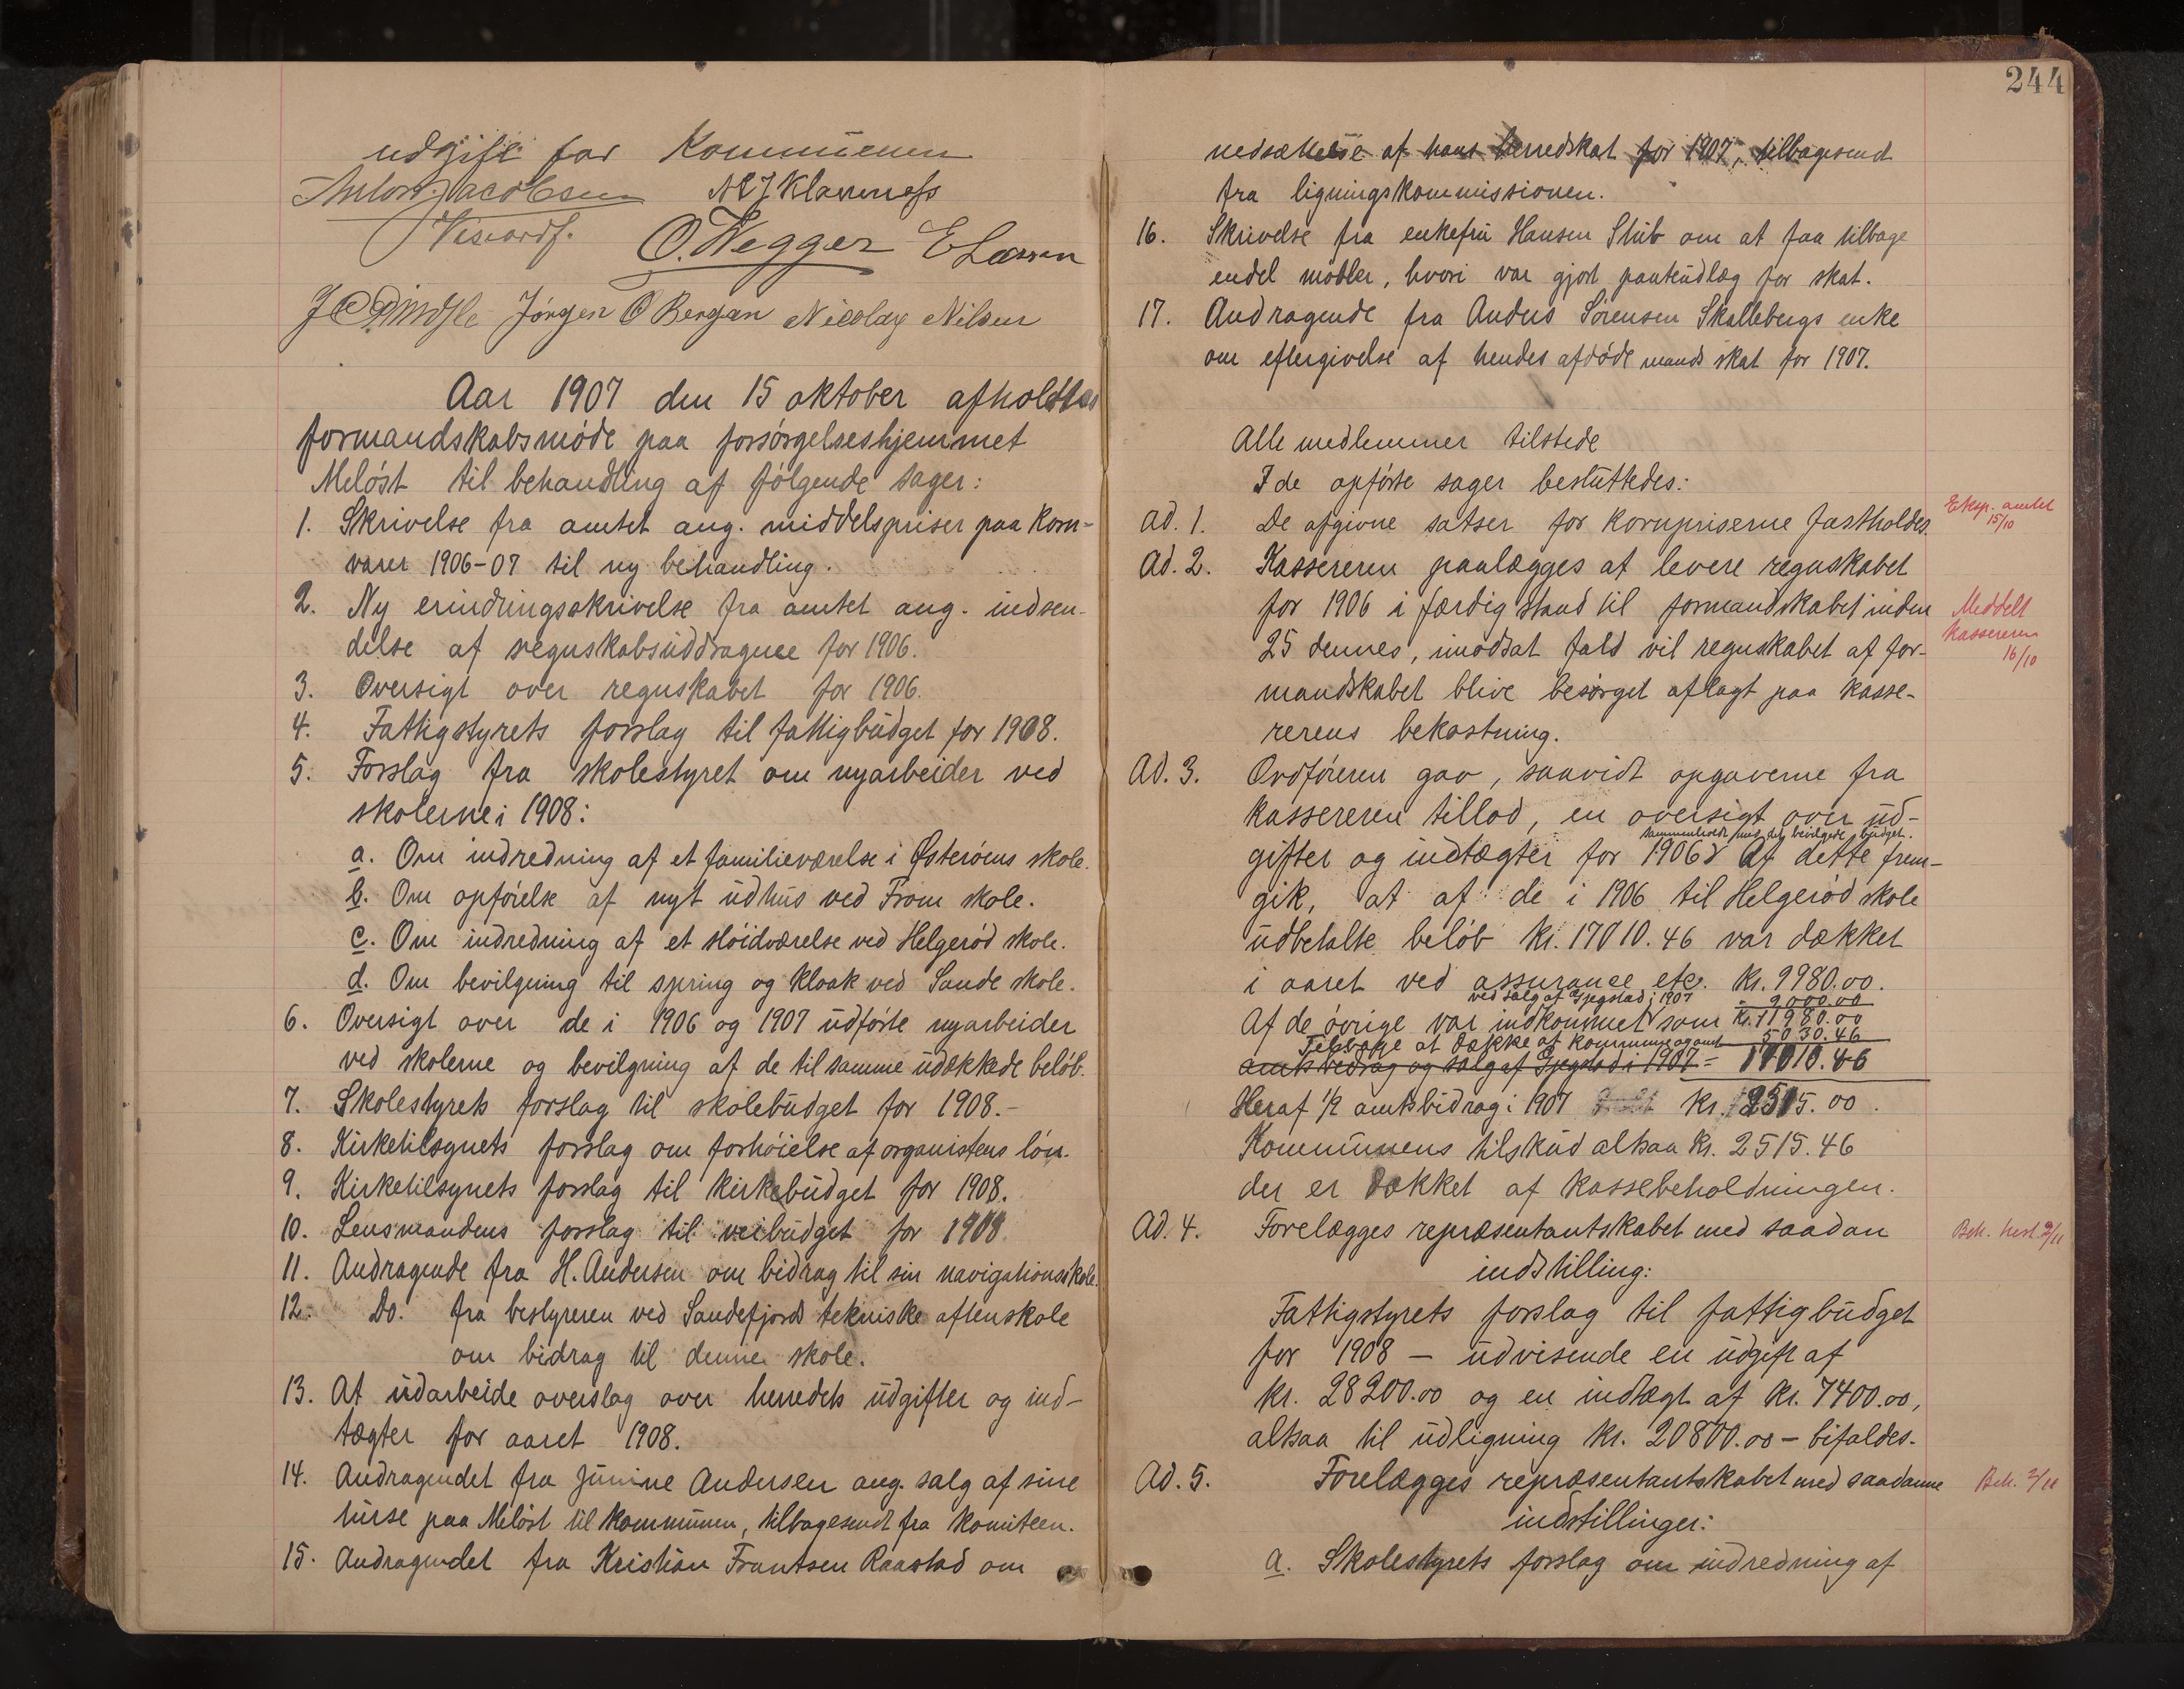 udgift for Kommunen
Anton Jacobsen
O. Wegger E Larsen
Jørgen O Bergan Nicolay Nilsen
Aar 1907 den 15 oktober afholdtes
formandskabsmøde paa forsørgelseshjemmet
Meløst til behandling af følgende sager:
1. Skrivelse fra amtet ang. middelspriser paa korn-
varer 1906-07 til ny behandling.
2. Ny erindringsskrivelse fra amtet ang. indsen-
delse af regnskabsuddragene for 1906.
3. Oversigt over regnskabet for 1906.
4. Fattigstyrets forslag til fattigbudget for 1908.
5. Forslag fra skolestyret om nyarbeider ved
skolerne i 1908:
a. Om indredning af et familieværelse i Østerøens skole.
b. Om opførelse af nyt udhus ved Fram skole.
c. Om indredning af et sløidværelse ved Helgerød skole.
d. Om bevilgning til spring og kloak ved Sande skole.
6. Oversigt over de i 1906 og 1907 udførte nyarbeider
ved skolerne og bevilgning af de til samme udækkede beløb.
7. Skolestyrets forslag til skolebudget for 1908.-
8. Kirketilsynets forslag om forhøielse af organistens løn.
9. Kirketilsynets forslag til kirkebudget for 1908.
10. Lensmandens forslag til veibudget for 1908
11. Andragende fra H. Andersen om bidrag til sin navigationsskole.
12. Do. fra bestyreren ved Sandefjords tekniske aftenskole
om bidrag til denne skole.
13. At udarbeide overslag over herredets udgifter og ind-
tægter for aaret 1908.
14. Andragendet fra Junine Andersen ang. salg af sine
huse paa Meløst til kommunen, tilbagesendt fra komiteen.
15. Andragendet fra Kristian Frantsen Raastad om
244
nedsættelse af hans herredskat for 1907, tilbagesend
fra ligningskommissionen.
16. Skrivelse fra enkefru Hansen Stub om at faa tilbage
endel møbler, hvori var gjort panteudlæg for skat.
17. Andragende fra Anders Sørensen Skallebergs enke
om eftergivelse af hendes afdøde mands skat for 1907.
Alle medlemmer tilstede
I de opførte sager besluttedes:
Ad. 1. De afgivne satser for kornpriserne fastholdes.
Eksp. amtet
15/10
Ad. 2. Kassereren paalægges at levere regnskabet
for 1906 i færdig stand til formandskabet inden
Meddelt
kassereren
16/10
25 dennes, imodsat fald vil regnskabet af for-
mandskabet blive besørget aflagt paa kasse-
rerens bekostning.
Ad. 3. Ordføreren gav, saavidt opgaverne fra
kassereren tillod, en oversigt over ud-
sammenholdt med det bevilgede budget.
gifter og indtægter for 1906. Af dette frem-
gik, at af de i 1906 til Helgerød skole
udbetalte beløb kr. 17010.46 var dækket
i aaret ved assurance etc. kr. 9980.00.
ved salg af Gjegstad i 1907 - 2000.00
Af de øvrige var indkommet som kr. 11980.00
Tilbage at dække af kommune og amt 5030.46
amtsbidrag og salg af Gjegstad i 1907 = 17010.46
Heraf 1/2 amtsbidrag i 1907 kr. 2515.00.
Kommunens tilskud altsaa kr. 2515.46
der er dækket af kassebeholdningen.
Ad. 4. Forelægges repræsentantskabet med saadan
Beh. herst. 2/11
indstilling:
Fattigstyrets forslag til fattigbudget
for 1908 - udvisende en udgift af
kr. 28200.00 og en indtægt af kr. 7400.00,
altsaa til udligning kr. 20800.00 - bifaldes.
Ad. 5. Forelægges repræsentantskabet med saadanne
Beh. 2/11
indstillinger:
a. Skolestyrets forslag om indredning af